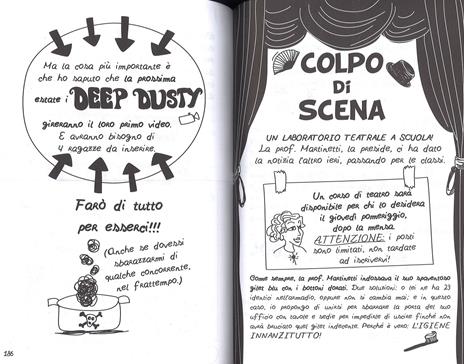 Ma la cosa più importante è
che ho saputo che la prossima
estate i DEEP DUSTY
gireranno il loro primo video.
E avranno bisogno di
4 ragazze da inserire.
Farò di tutto
per esserci!!!
(Anche se dovessi
sbarazzarmi di
qualche concorrente,
nel frattempo.)
186
COLPO
DI
SCENA
UN LABORATORIO TEATRALE A SCUOLA!
La prof. Martinetti, la preside, ci ha dato
la notizia l'altro ieri, passando per le classi.
Un corso di teatro sarà
disponibile per chi lo desidera
il giovedì pomeriggio,
dopo la mensa.
ATTENZIONE: i posti
sono limitati, non tardate
ad iscrivervi!
Come sempre, la prof. Martinetti indossava il suo spaventoso
gilet blu con i bottoni dorati. Due soluzioni: o lei ne ha 23
identici nell'armadio, oppure non si cambia mai; e in questo
caso, io propongo di unirsi per sbarrare la porta del suo
ufficio con tavole e sedie per impedirle di uscire finché non
avrà bruciato quel gilet indecente. Perché è vero: L'IGIENE
INNANZITUTTO!